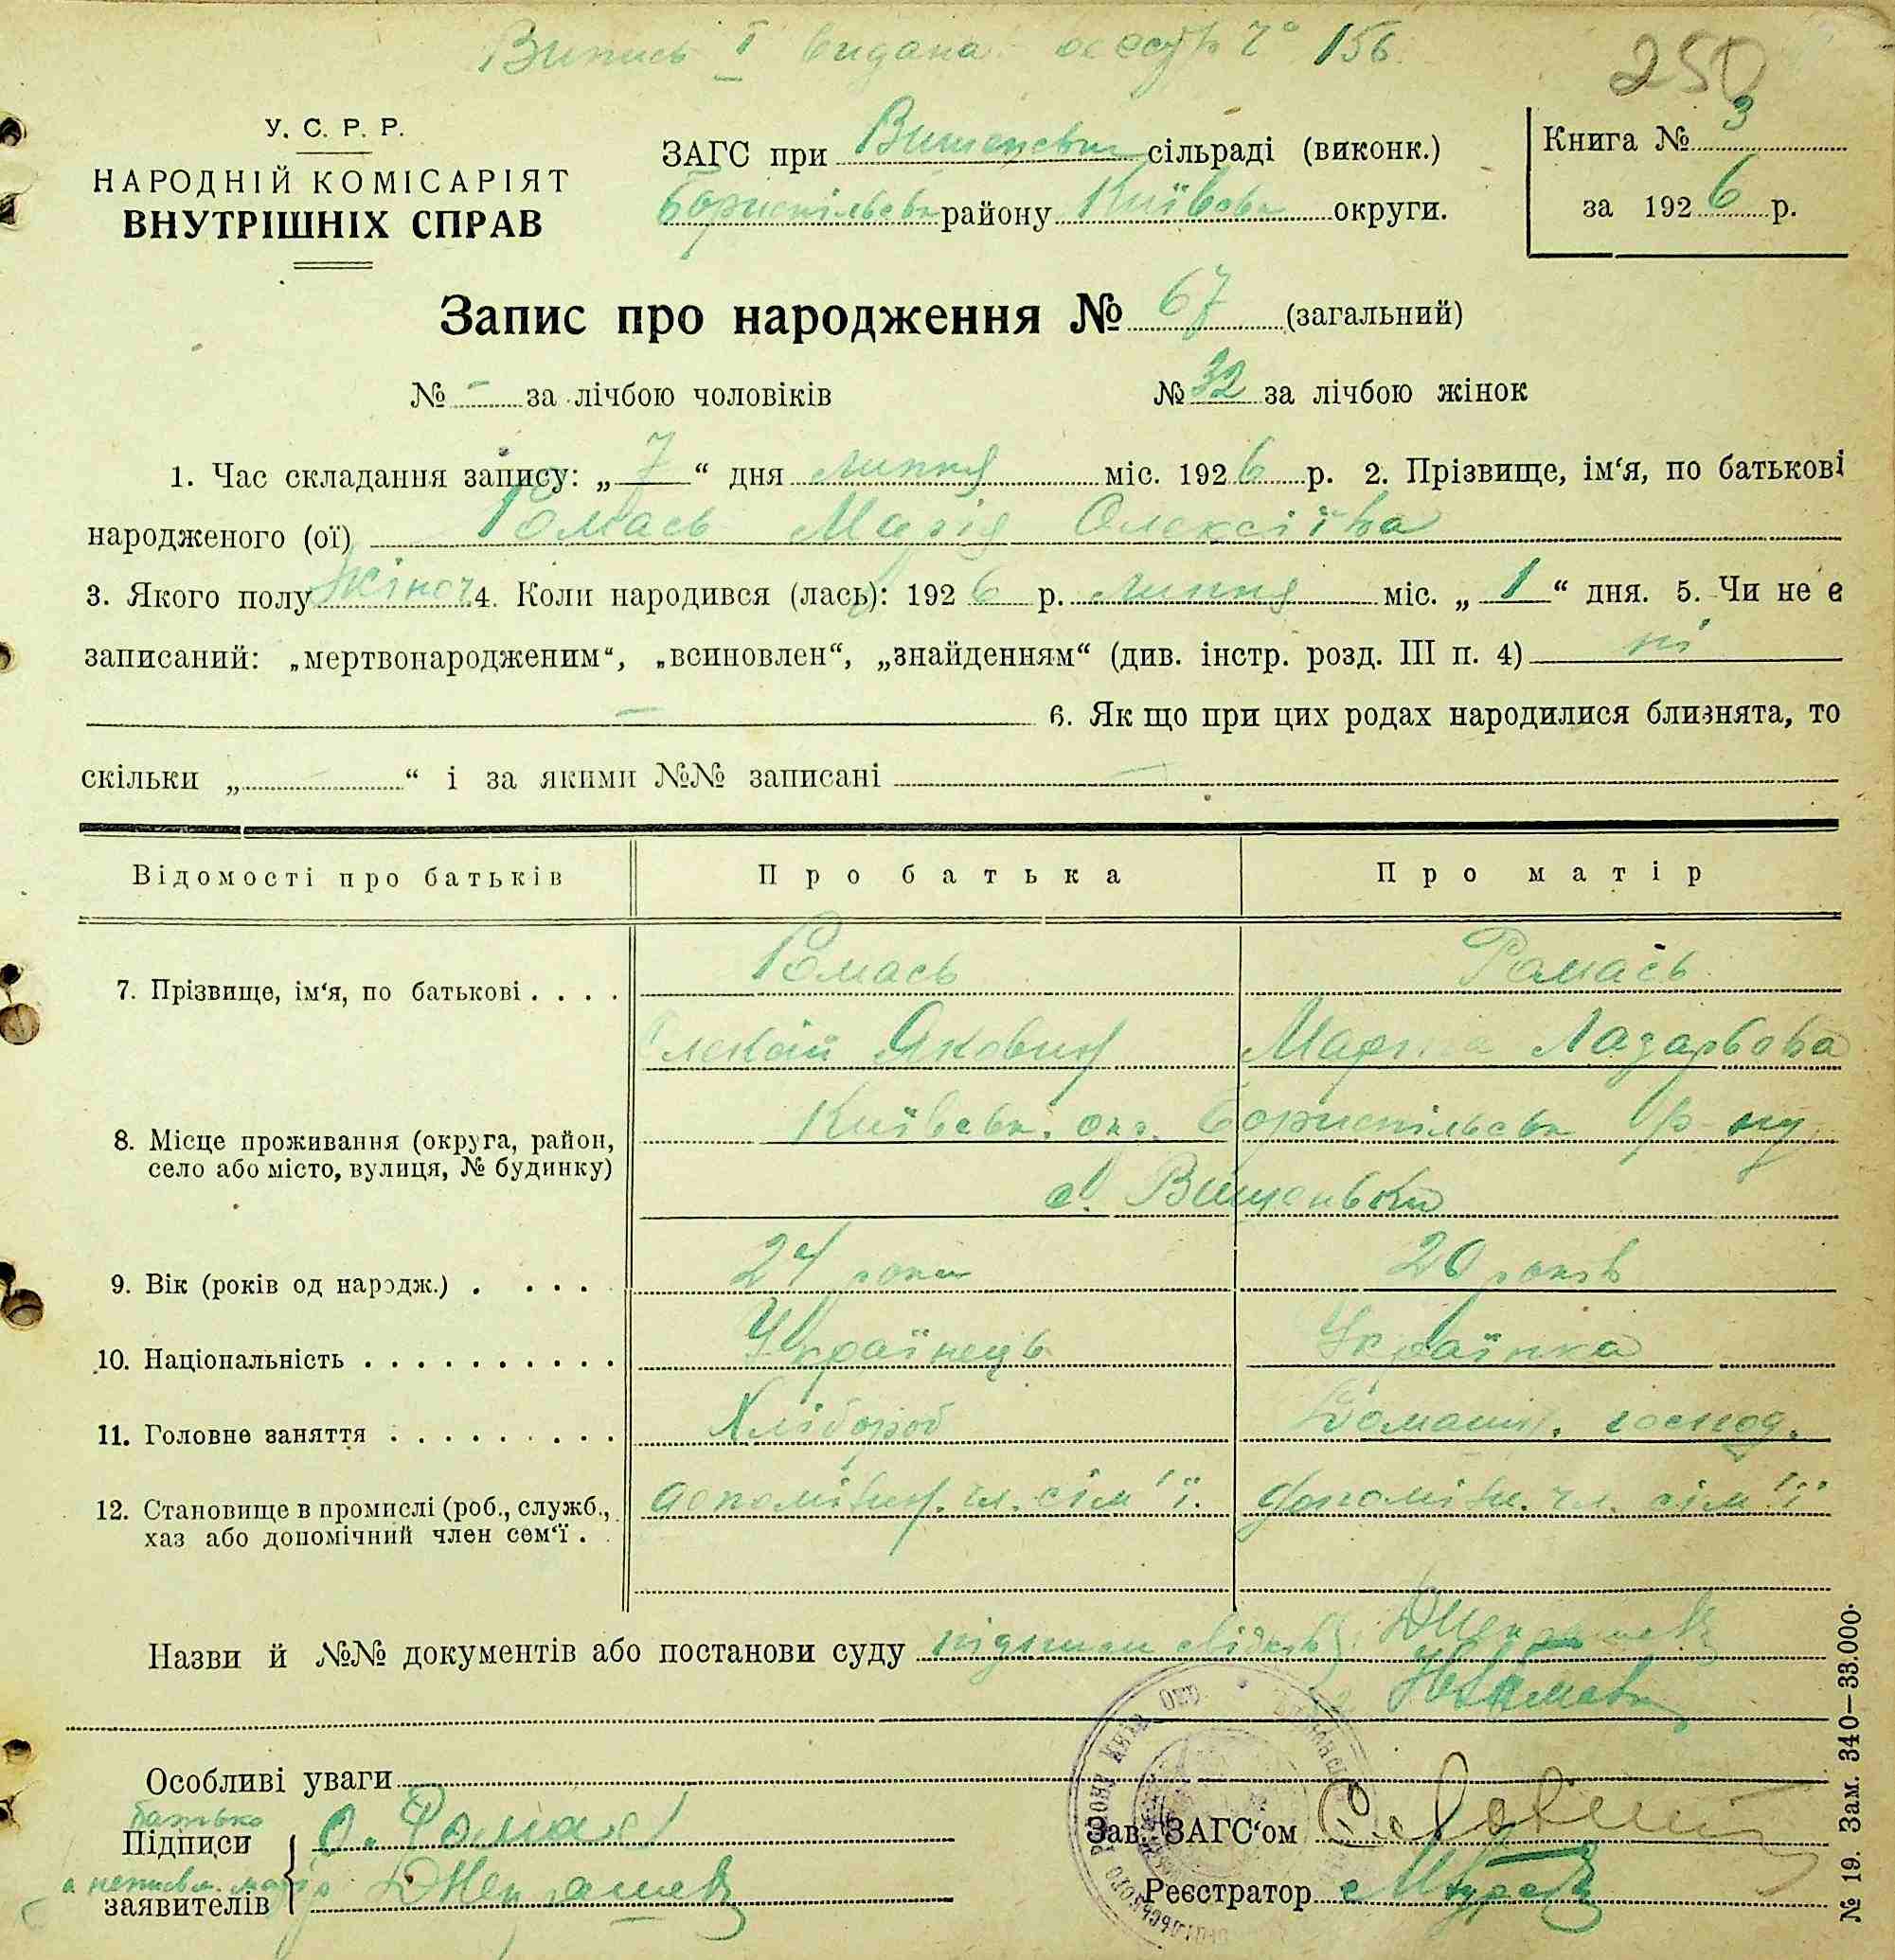 Випись І видана 156
250
У. С. Р. Р.
НАРОДНІЙ КОМІСАРІЯТ
ВНУТРІШНІХ СПРАВ
ЗАГС при Вишеньськ сільраді (виконк.)
Бориспільськ району Київськ округи.
Книга № 3
за 1926 р.
Запис про народження № 67 (загальний)
№ - за лічбою чоловіків
№ 32 за лічбою жінок
1. Час складання запису: „7“ дня липня міс. 1926 р. 2. Прізвище, ім‘я, по батькові
народженого (ої) Ромась Марія Олексіївна
3. Якого полу жіноч 4. Коли народився (лась): 1926 р. липня міс. „1“ дня. 5. Чи не є
записаний: „мертвонародженим“, „всиновлен“, „знайденням“ (див. інстр. розд. III п. 4) ні
— 6. Як що при цих родах народилися близнята, то
скільки „—“ і за якими №№ записані —
Відомості про батьків
Про батька
Про матір
7. Прізвище, ім‘я, по батькові . . . .
Ромась
Ромась
Олексій Якович
Марта Лазарьовна
8. Місце проживання (округа, район,
село або місто, вулиця, № будинку)
Київськ. окр. Бориспільськ р-ну
с. Вишеньки
9. Вік (років од народж.) . . . . .
24 роки
20 років
10. Національність . . . . . . . . . . .
Українець
Українка
11. Головне заняття . . . . . . . . . .
Хлібороб
Домашн. господ.
12. Становище в промислі (роб., служб.,
хаз або допомічний член сем‘ї . .
допомічн. чл. сім'ї.
допомічн. чл. сім'ї
Назви й №№ документів або постанови суду підписи свідків:
Особливі уваги
батько
Підписи
заявителів
О. Ромась
Зав. ЗАГС‘ом
Реєстратор
№ 19. Зам. 340—33.000.